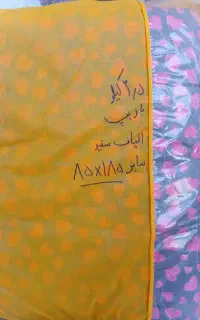 ۲٫۵ کیلو
با زیپ
الیاف سفید
سایز ۸۵×۱۸۵